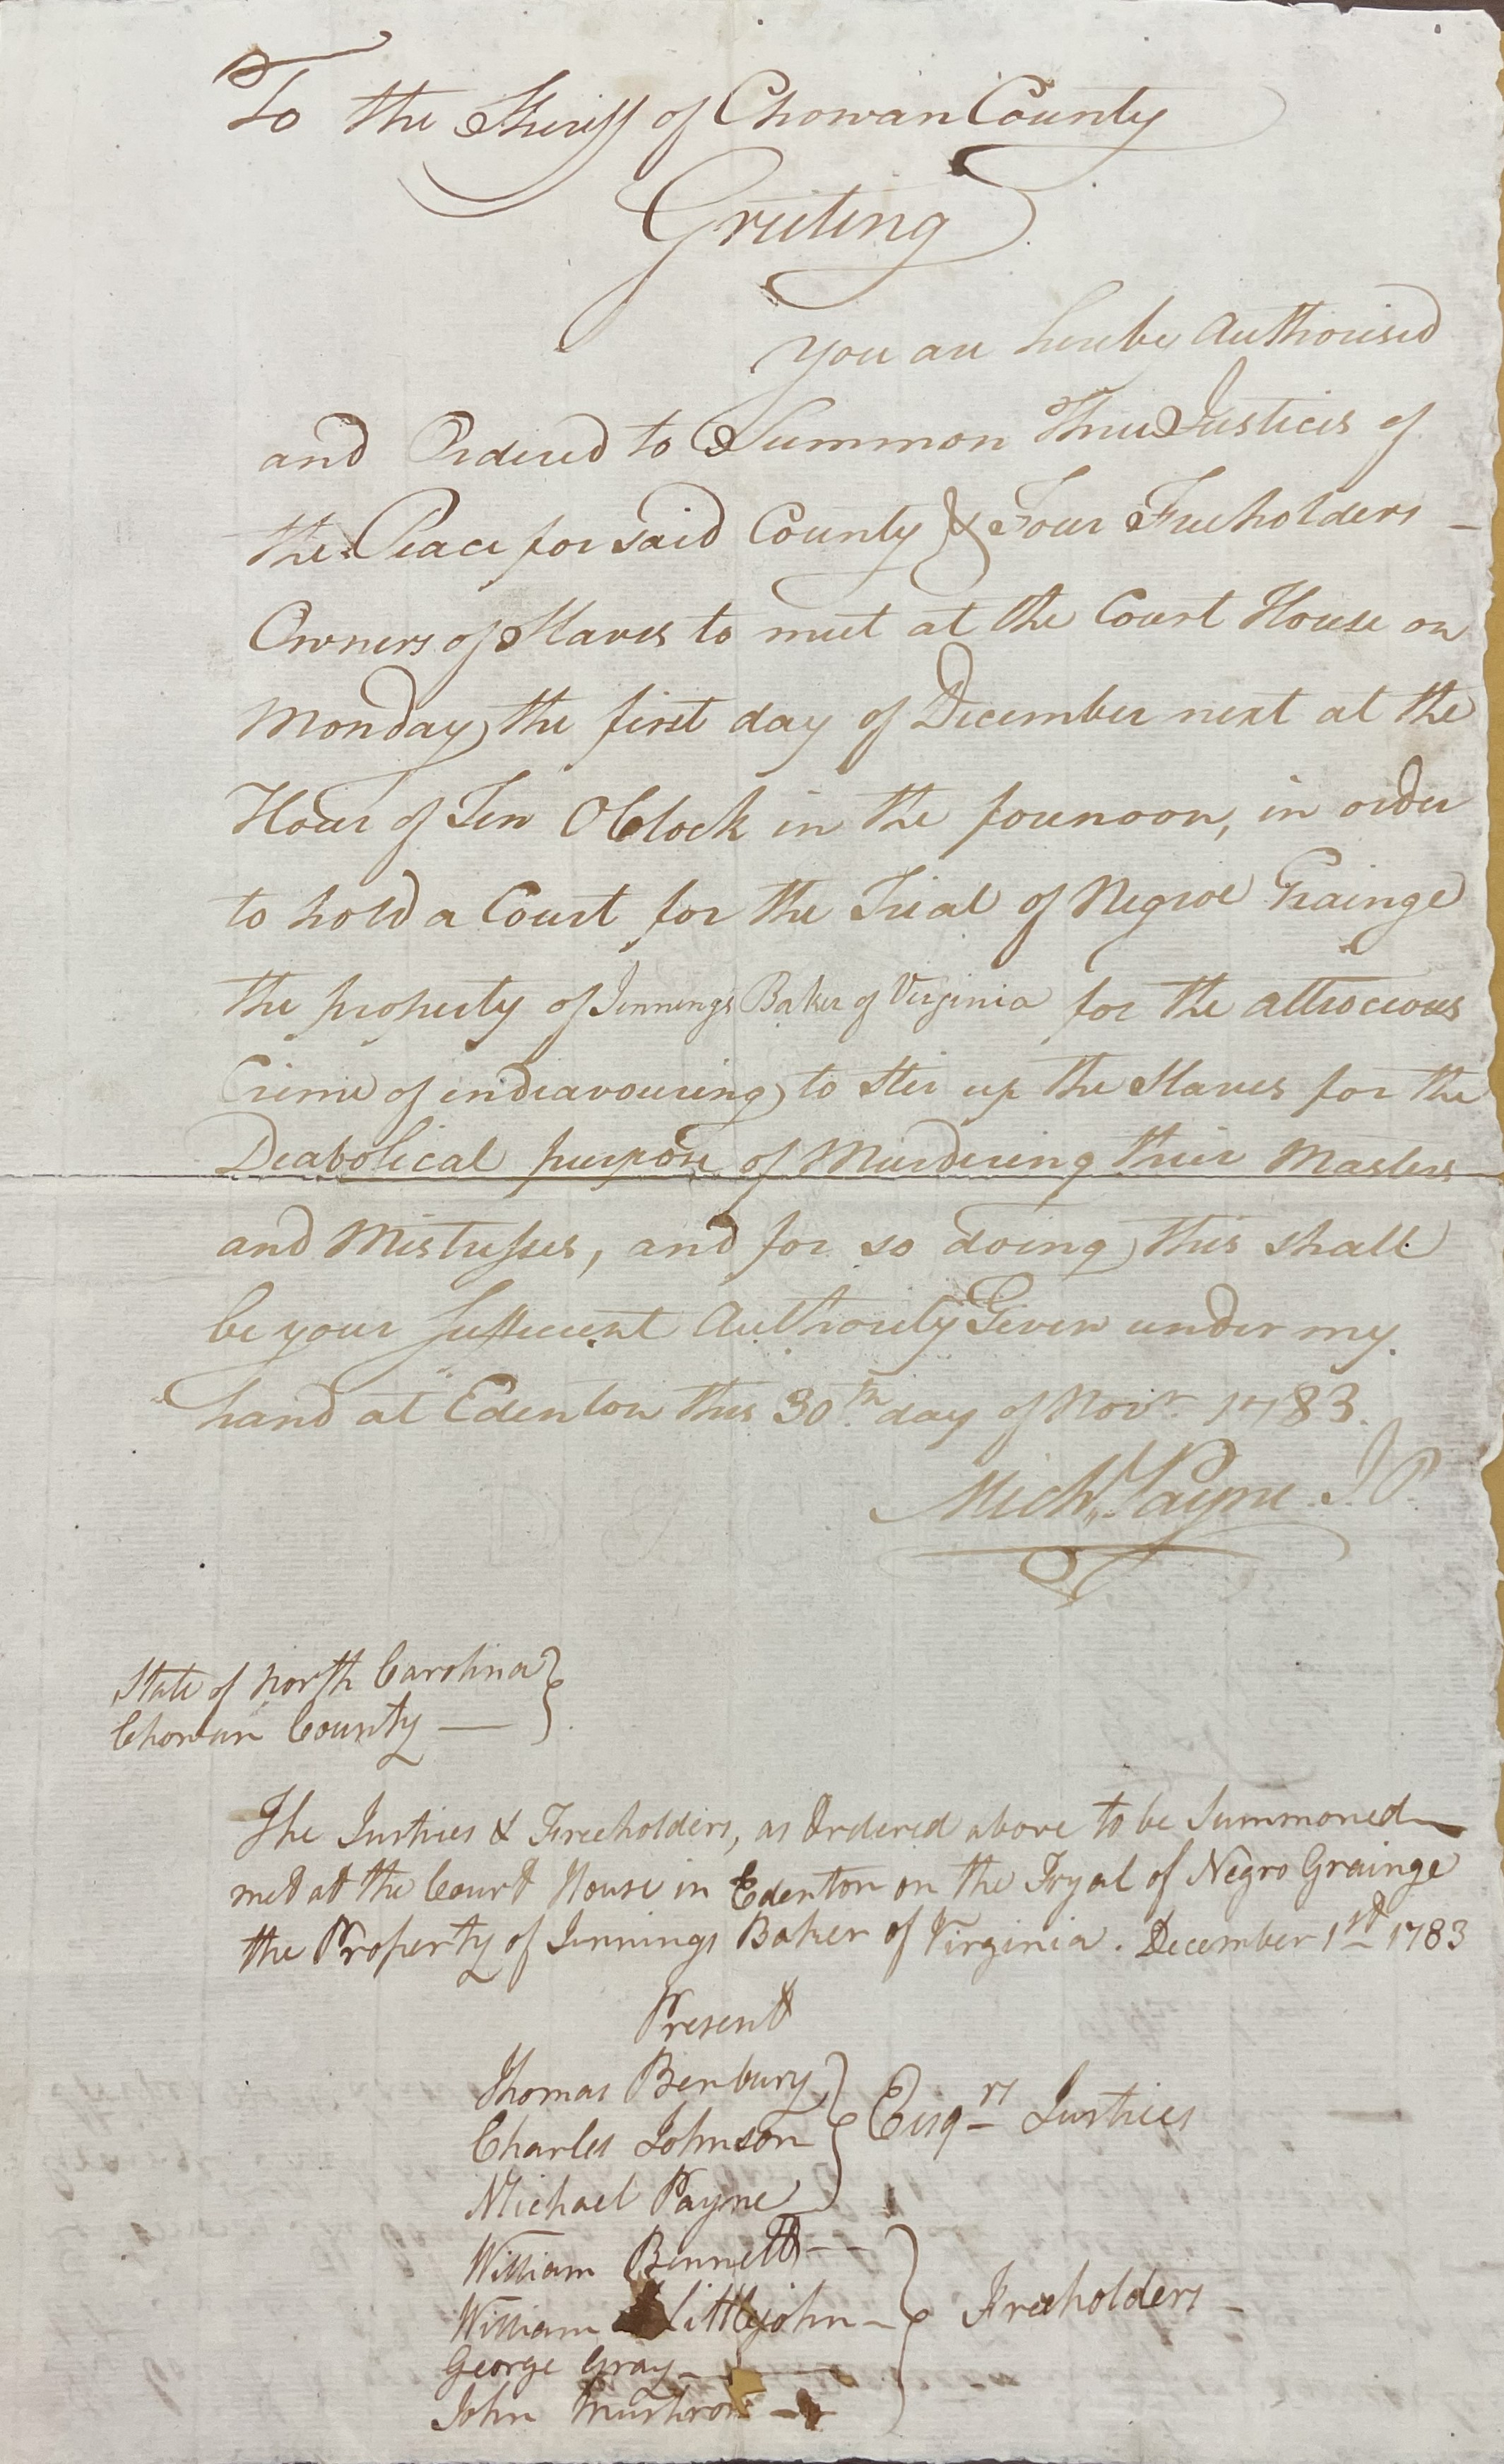 To the Sheriff of Chowan County
Greeting
You are hereby Authorised
and Ordered to Summon Three Justices of
the Peace for said County & Four Freeholders -
Owners of Slaves to meet at the Court House on
Monday the first day of December next at the
Hour of Ten OClock in the forenoon, in order
to hold a Court for the Trial of Negroe Grainge
the property of Jennings Baker of Virginia for the attrocious
Crime of endeavouring to stir up the Slaves for the
Deabolical purpose of Murdering their Masters
and Mistresses, and for so doing this shall
be your Sufficient Authority Given under my
hand at Edenton this 30th day of Novr. 1783.
Michl. Payne J.P.
State of North Carolina }
Chowan County —
The Justices & Freeholders, as Ordered above to be Summoned
met at the Court House in Edenton on the Tryal of Negro Grainge
the Property of Jennings Baker of Virginia. December 1st 1783
Present
Thomas Benbury
Charles Johnson } Esqrs Justices
Michael Payne
William Bennett - -
William Littlejohn - } Freeholders -
George Gray -
John